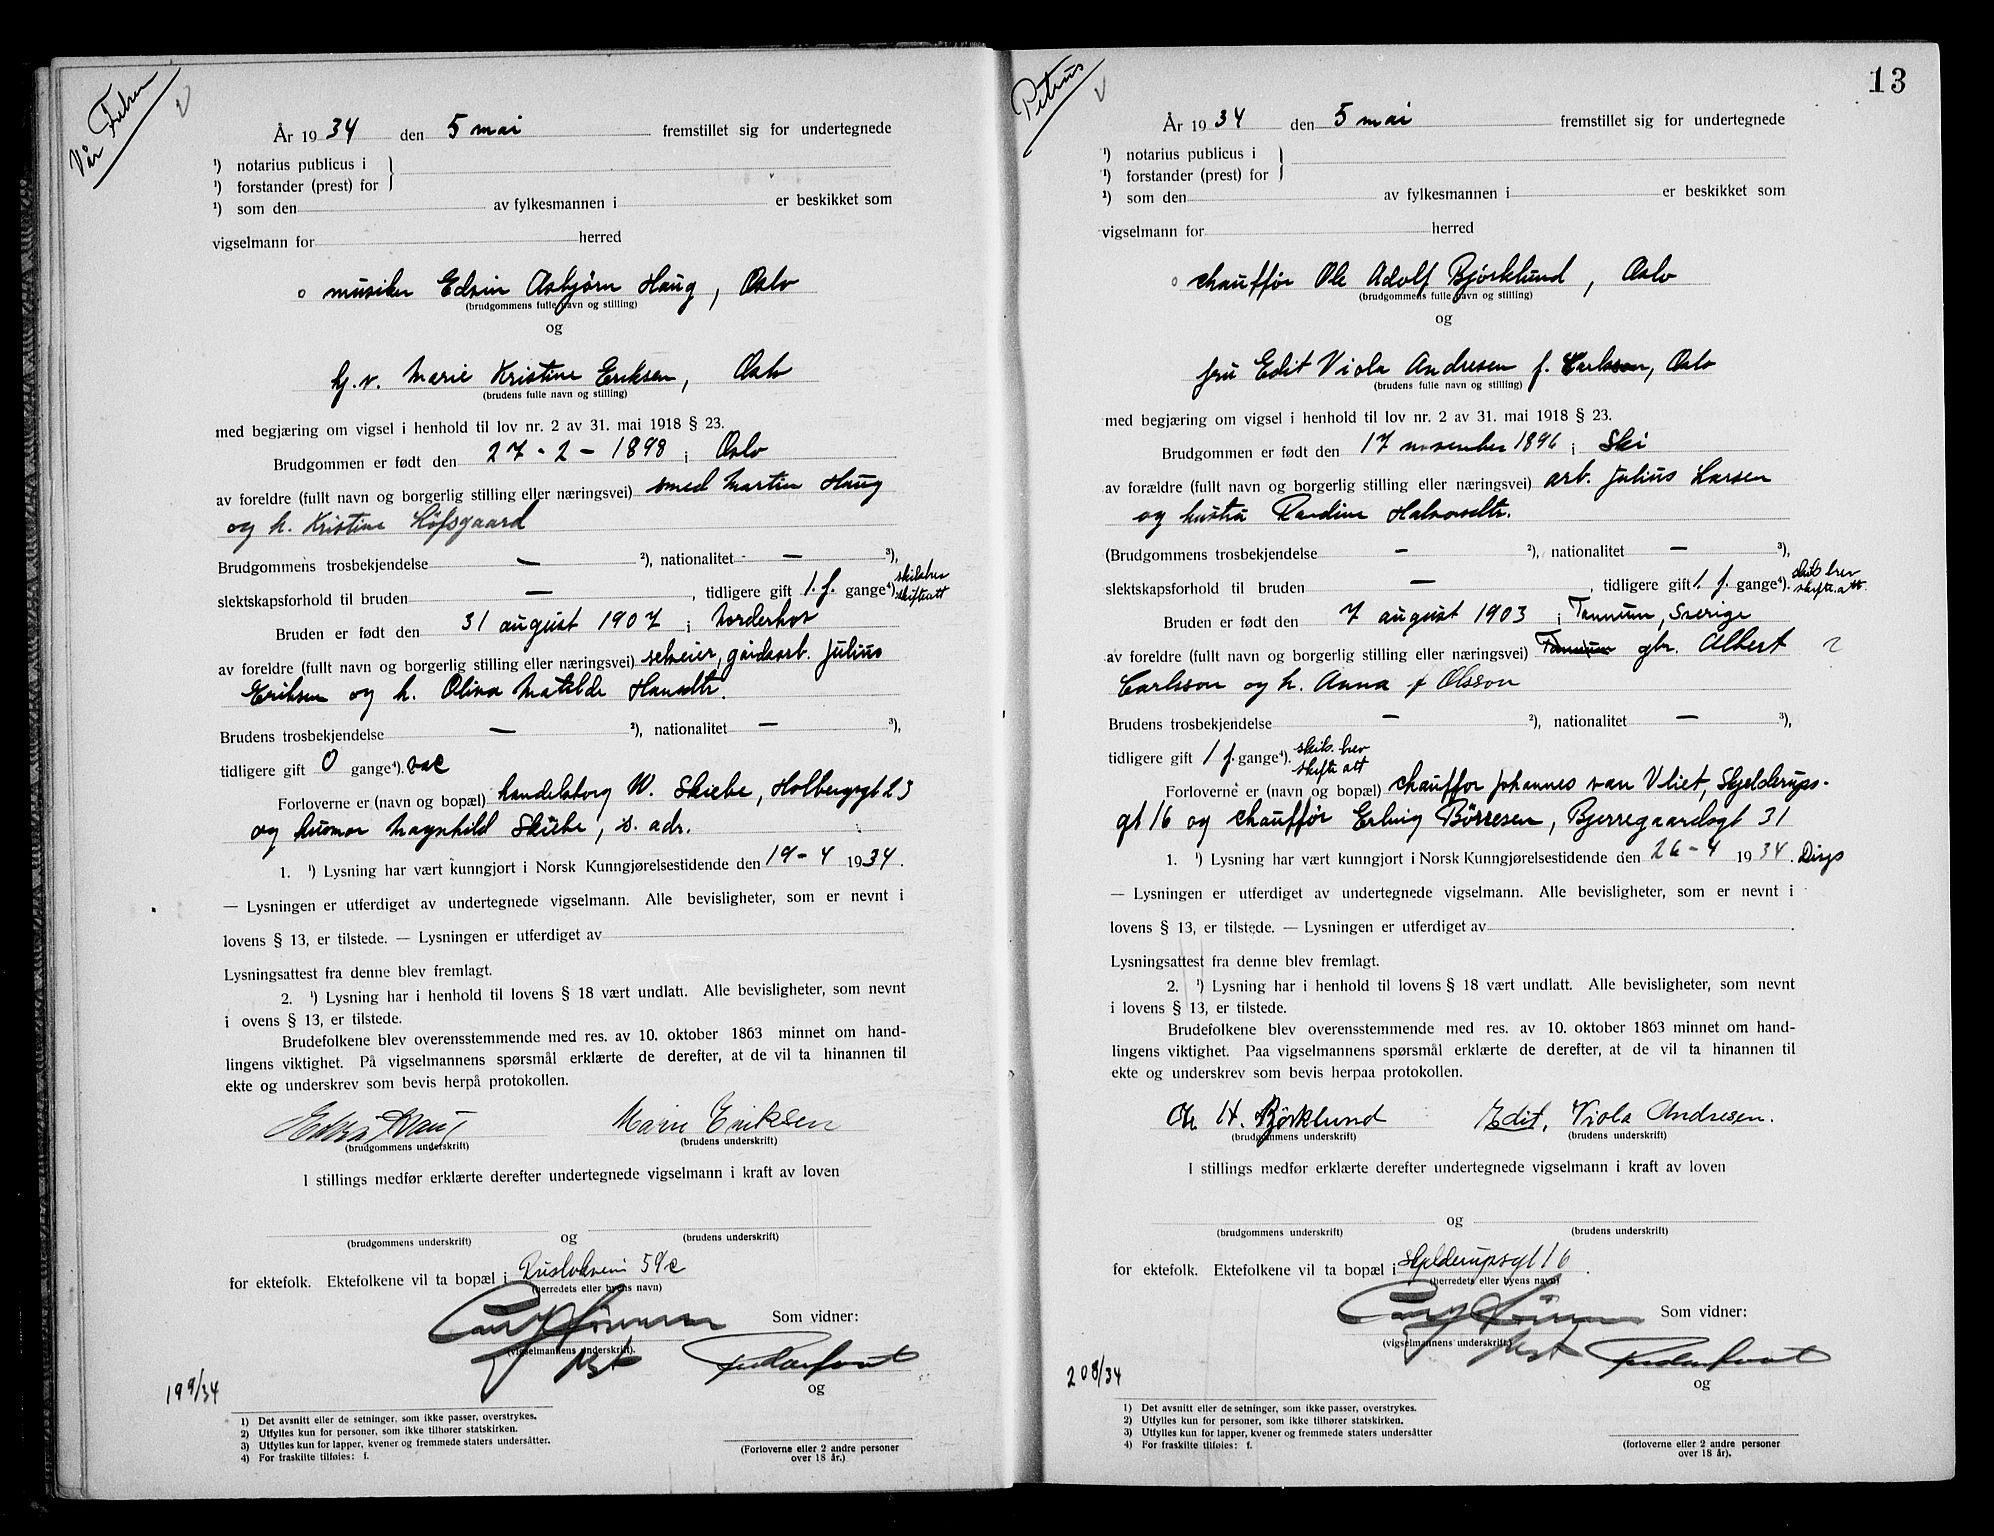 Vår Frelser
År 1934 den 5 mai fremstillet sig for undertegnede
¹) notarius publicus i
¹) forstander (prest) for
¹) som den av fylkesmannen i er beskikket som
vigselmann for herred
musiker Edvin Asbjørn Haug, Oslo
(brudgommens fulle navn og stilling)
og
hj.v. Marie Kristine Eriksen, Oslo
(brudens fulle navn og stilling)
med begjæring om vigsel i henhold til lov nr. 2 av 31. mai 1918 § 23.
Brudgommen er født den 27-2-1898 i Oslo
av foreldre (fullt navn og borgerlig stilling eller næringsvei) smed Martin Haug
og h. Kristine Løfsgaard
Brudgommens trosbekjendelse — ²), nationalitet — ³),
slektskapsforhold til bruden — , tidligere gift 1 f. gange⁴) skilsbrev skifteatt
Bruden er født den 31 august 1907 i Norderhov
av foreldre (fullt navn og borgerlig stilling eller næringsvei) selveier, gårdsarb. Julius
Eriksen og h. Oliva Matilde Hansdtr.
Brudens trosbekjendelse — ²), nationalitet — ³),
tidligere gift 0 gange⁴). vac
Forloverne er (navn og bopæl) handelsborg W. Skiebe, Holbergsgt 23
og husmor Magnhild Skiebe, s. adr.
1. ¹) Lysning har vært kunngjort i Norsk Kunngjørelsestidende den 19-4 1934.
— Lysningen er utferdiget av undertegnede vigselmann. Alle bevisligheter, som er nevnt i
lovens § 13, er tilstede. — Lysningen er utferdiget av
Lysningsattest fra denne blev fremlagt.
2. ¹) Lysning har i henhold til lovens § 18 vært undlatt. Alle bevisligheter, som nevnt
i ovens § 13, er tilstede.
Brudefolkene blev overensstemmende med res. av 10. oktober 1863 minnet om hand-
lingens viktighet. På vigselmannens spørsmål erklærte de derefter, at de vil ta hinannen til
ekte og underskrev som bevis herpå protokollen.
Edvin Haug Marie Eriksen
(brudgommens underskrift) (brudens underskrift)
I stillings medfør erklærte derefter undertegnede vigselmann i kraft av loven
og
(brudgommens underskrift) (brudens underskrift)
for ektefolk. Ektefolkene vil ta bopæl i Ruseløkveien 59c
(herredets eller byens navn)
Som vidner:
(vigselmannens underskrift).
199/34
og
1) Det avsnitt eller de setninger, som ikke passer, overstrykes.
2) Utfylles kun for personer, som ikke tilhører statskirken.
3) Utfylles kun for lapper, kvener og fremmede staters undersåtter.
4) For fraskilte tilføies: f.
(Forloverne eller 2 andre personer
over 18 år.)
13
Petrus
År 1934 den 5 mai fremstillet sig for undertegnede
¹) notarius publicus i
¹) forstander (prest) for
¹) som den av fylkesmannen i er beskikket som
vigselmann for herred
chauffør Ole Adolf Bjørklund, Oslo
(brudgommens fulle navn og stilling)
og
fru Edit Viola Andresen f. Carlsson, Oslo
(brudens fulle navn og stilling)
med begjæring om vigsel i henhold til lov nr. 2 av 31. mai 1918 § 23.
Brudgommen er født den 17 november 1896 i Ski
av forældre (fullt navn og borgerlig stilling eller næringsvei) arb. Julius Larsen
og hustru Randine Halvorsdtr.
(Brudgommens trosbekjendelse — ²), nationalitet — ³),
slektskapsforhold til bruden — , tidligere gift 1 f. gange⁴). skilsbrev skifteatt.
Bruden er født den 7 august 1903 i Tannum, Sverige
av foreldre (fullt navn og borgerlig stilling eller næringsvei) Tannum gbr. Albert ?
Carlsson og h. Anna f Olsson
Brudens trosbekjendelse — ²), nationalitet — ³),
tidligere gift 1 f. gange⁴). skils.brev skifteatt
Forloverne er (navn og bopæl) chauffør Johannes van Vliet, Skjelderups-
gt 16 og chauffør Erling Børresen, Bjerregaardsgt 31
1. ¹) Lysning har vært kunngjort i Norsk Kunngjørelsestidende den 26-4 1934.
— Lysningen er utferdiget av undertegnede vigselmann. Alle bevisligheter, som er nevnt i
lovens § 13, er tilstede. — Lysningen er utferdiget av
Lysningsattest fra denne blev fremlagt.
2. ¹) Lysning har i henhold til lovens § 18 vært undlatt. Alle bevisligheter, som nevnt
i lovens § 13, er tilstede.
Brudefolkene blev overensstemmende med res. av 10. oktober 1863 minnet om hand-
lingens viktighet. Paa vigselmannens spørsmål erklærte de derefter, at de vil ta hinannen til
ekte og underskrev som bevis herpaa protokollen.
Ole A. Bjørklund Edit, Viola Andresen.
(brudgommens underskrift) (brudens underskrift)
I stillings medfør erklærte derefter undertegnede vigselmann i kraft av loven
og
(brudgommens underskrift) (brudens underskrift)
for ektefolk. Ektefolkene vil ta bopæl i Skjelderupsgt 16
(herredets eller byens navn)
Som vidner:
(vigselmannens underskrift)
208/34
og
1) Det avsnitt eller de setninger, som ikke passer, overstrykes.
2) Utfylles kun for personer, som ikke tilhører statskirken.
3) Utfylles kun for lapper, kvener og fremmede staters undersåtter
4) For fraskilte tilføies: f.
(forloverne eller 2 andre personer
over 18 år).